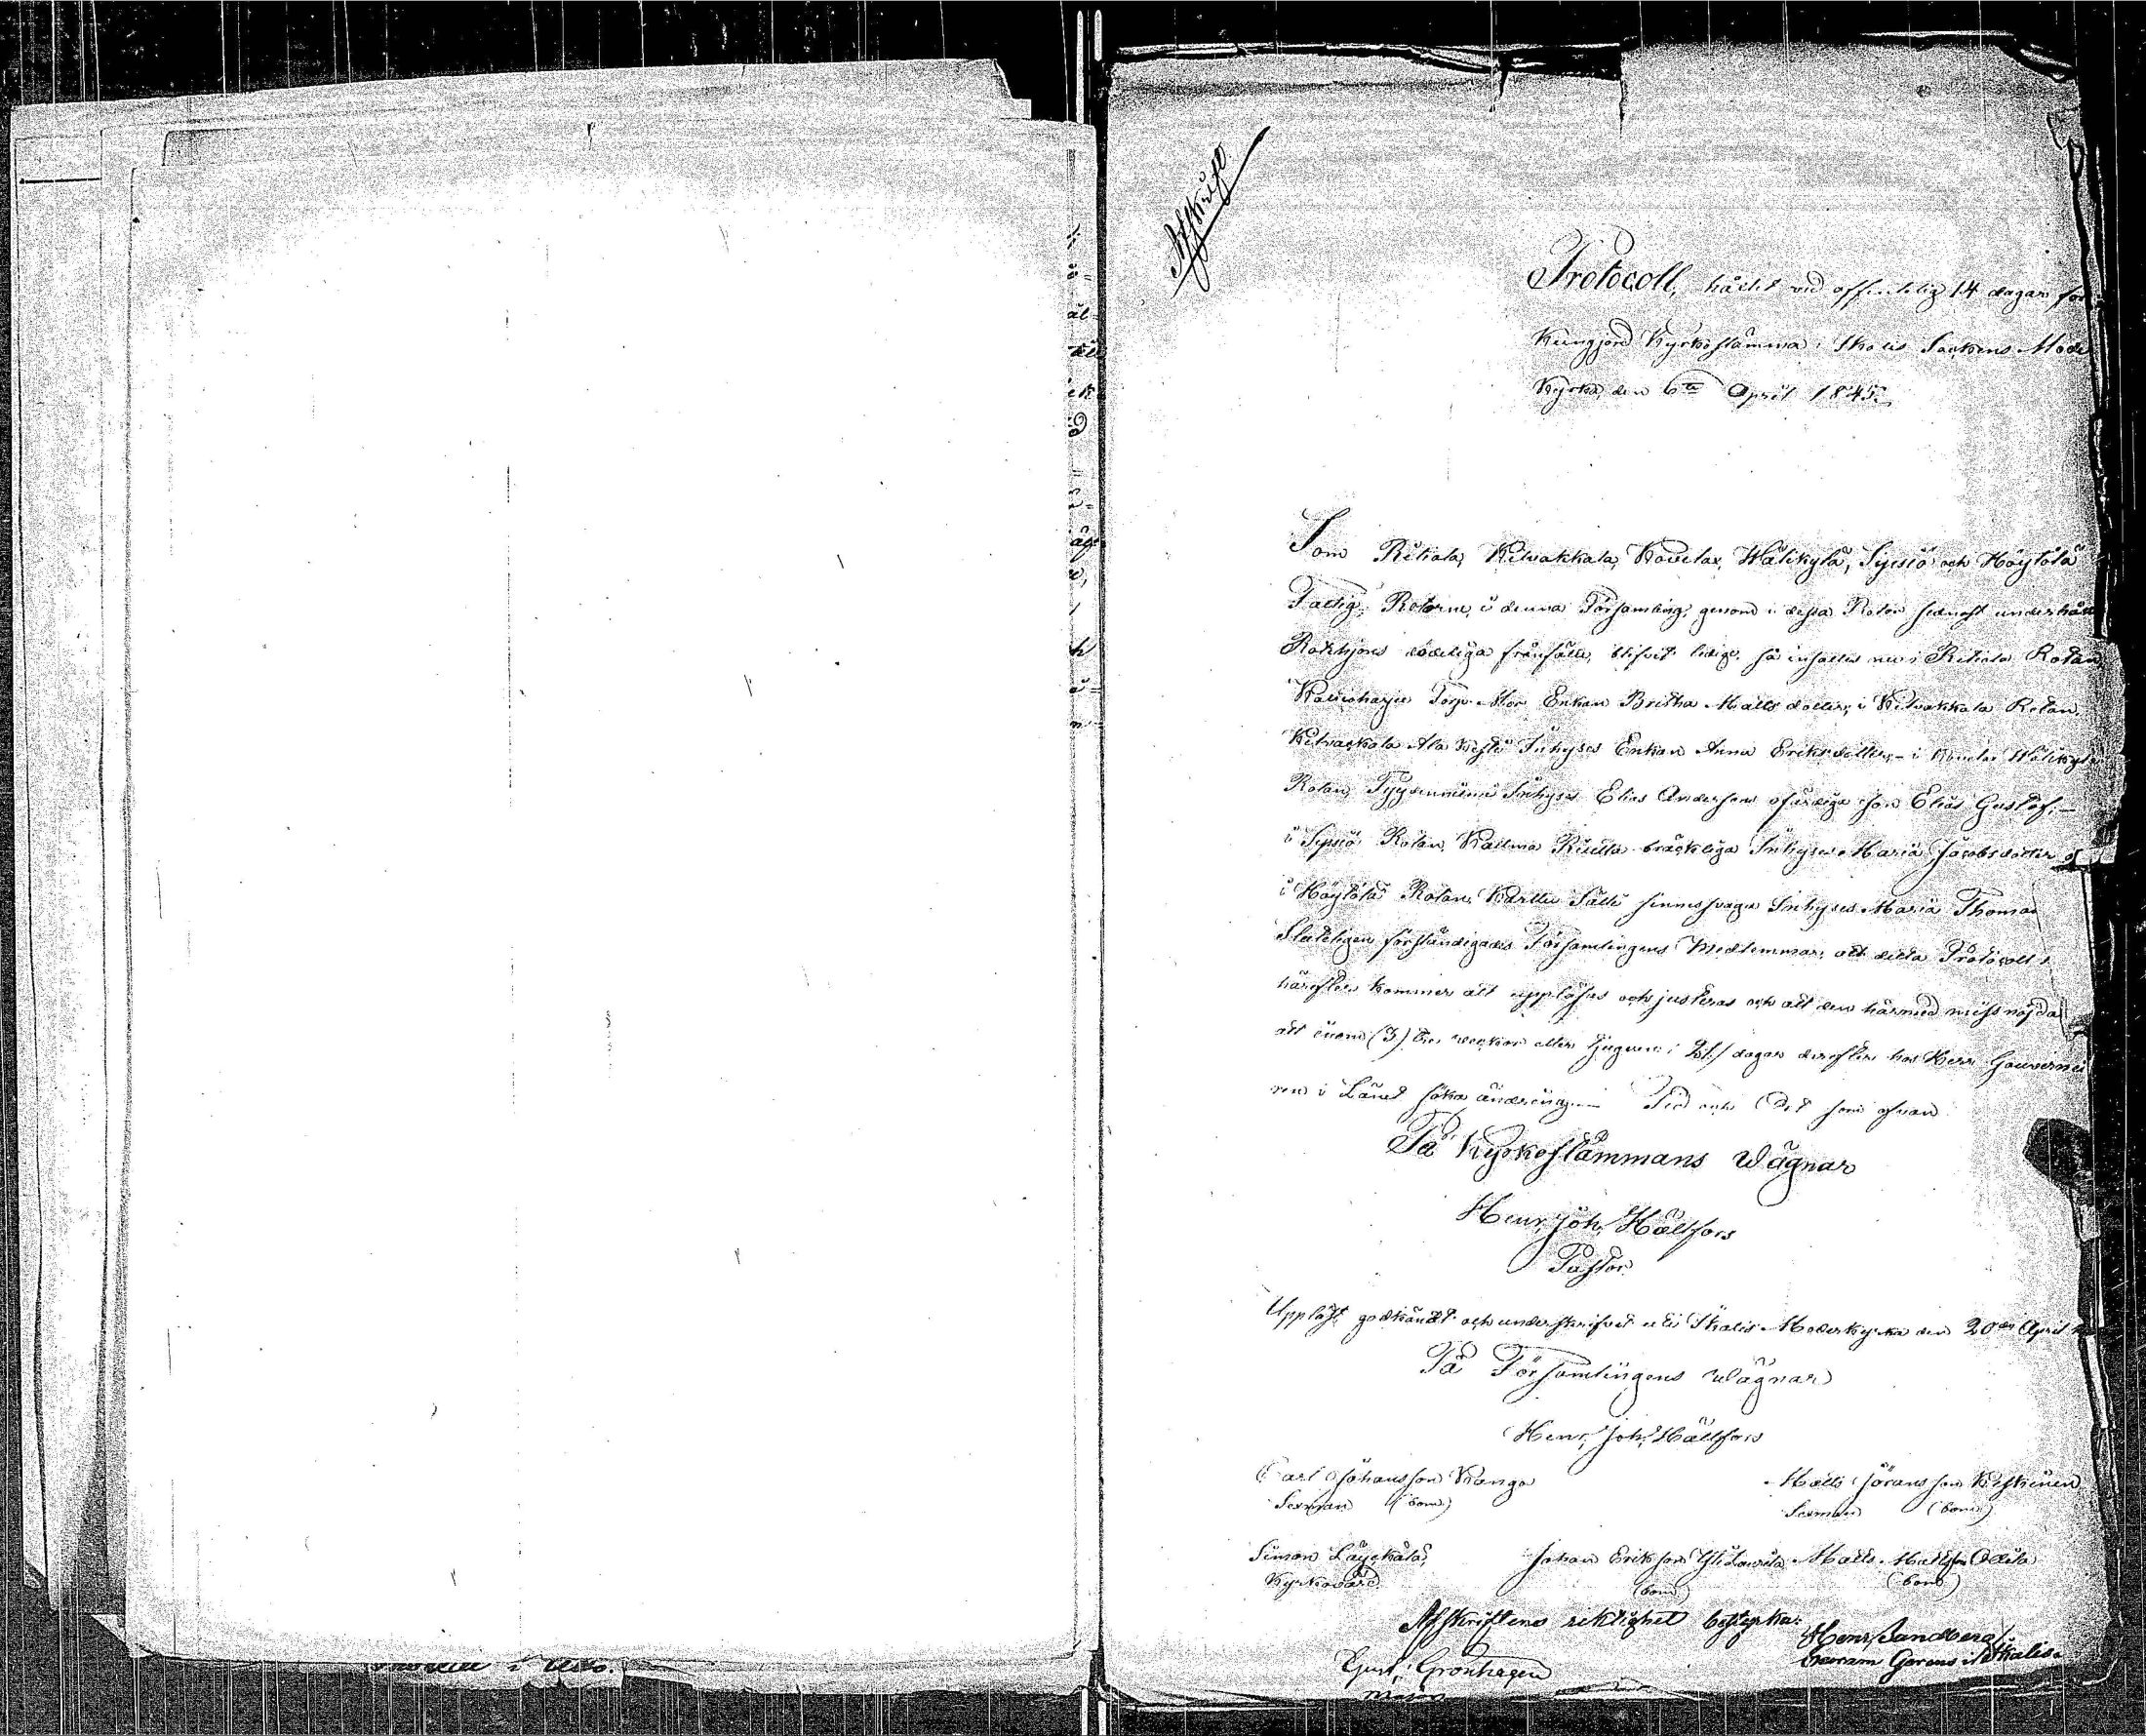 Afskrift
Protocoll, hållet vid offentelig 14 dagar för
Kungjord Kyrkostämma i Ikalis Sockens Mode
Kyrka, den 6te April 1845.
Som Riitiala, Kilvakkala, Kovelax, Wälikylä, Sipsiö och Höytölä
Fattig Rotorne, i denna Församling, genom i dessa Rotor sednast underhåll
Rotehjons dödeliga frånfälle, blifvit lediga, så infattes nu i Riitiala Rotan,
Torp. Mor Enkan Britha Matts dotter, i Kilvakkala Rotan,
Kilvackala Ala Inhyses Enkan Anna Eriksdotter, – i Kovelax Wälikylä
Rotan, Inhyses Elias Andersons ofärdiga son Elias Gustaf, –
i Sipsiö Rotan, bräckliga Inhyses Maria Jacobsdotter, o
i Höytölä Rotan, sinnessvaga Inhyses Maria Thomas
Sluteligen förständigades Församlingens Medlemmar, att detta Protocoll
härefter kommer att uppläsas och justeras och att den härmed missnöjda
att inom (3) tre veckor eller tjuguen i 21/ dagar derefter hos Herr Gouverneu
ren i Länet söka ändring. – Tid och Ort som ofvan
På Kyrkostämmans Wägnar
Henr. Joh. Hällfors
Pastor.
Uppläst, godkändt och underskrifvit uti Ikalis Moderkyrka den 20de April
På Församlingens Wägnar
Henr. Joh. Hällfors
Carl Johansson Kanga
Sexman (bom.)
Matts Göransson Keskinen
Sexman (bom.)
Simon
Kyrkovärd.
Johan Eriksson
(bom.)
Matts Mattsson
(bom)
Afskriftens riktighet bestyrka:
Henr. Sandberg
Gust. Grönhagen